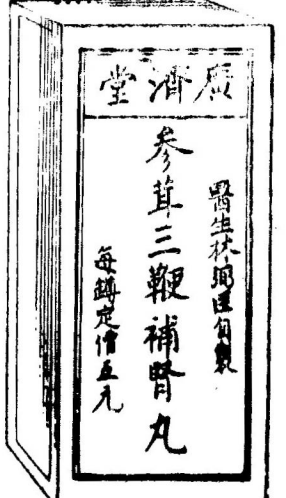 廣濟堂
醫生林自製
参茸三鞭補腎丸
每罇定價五元